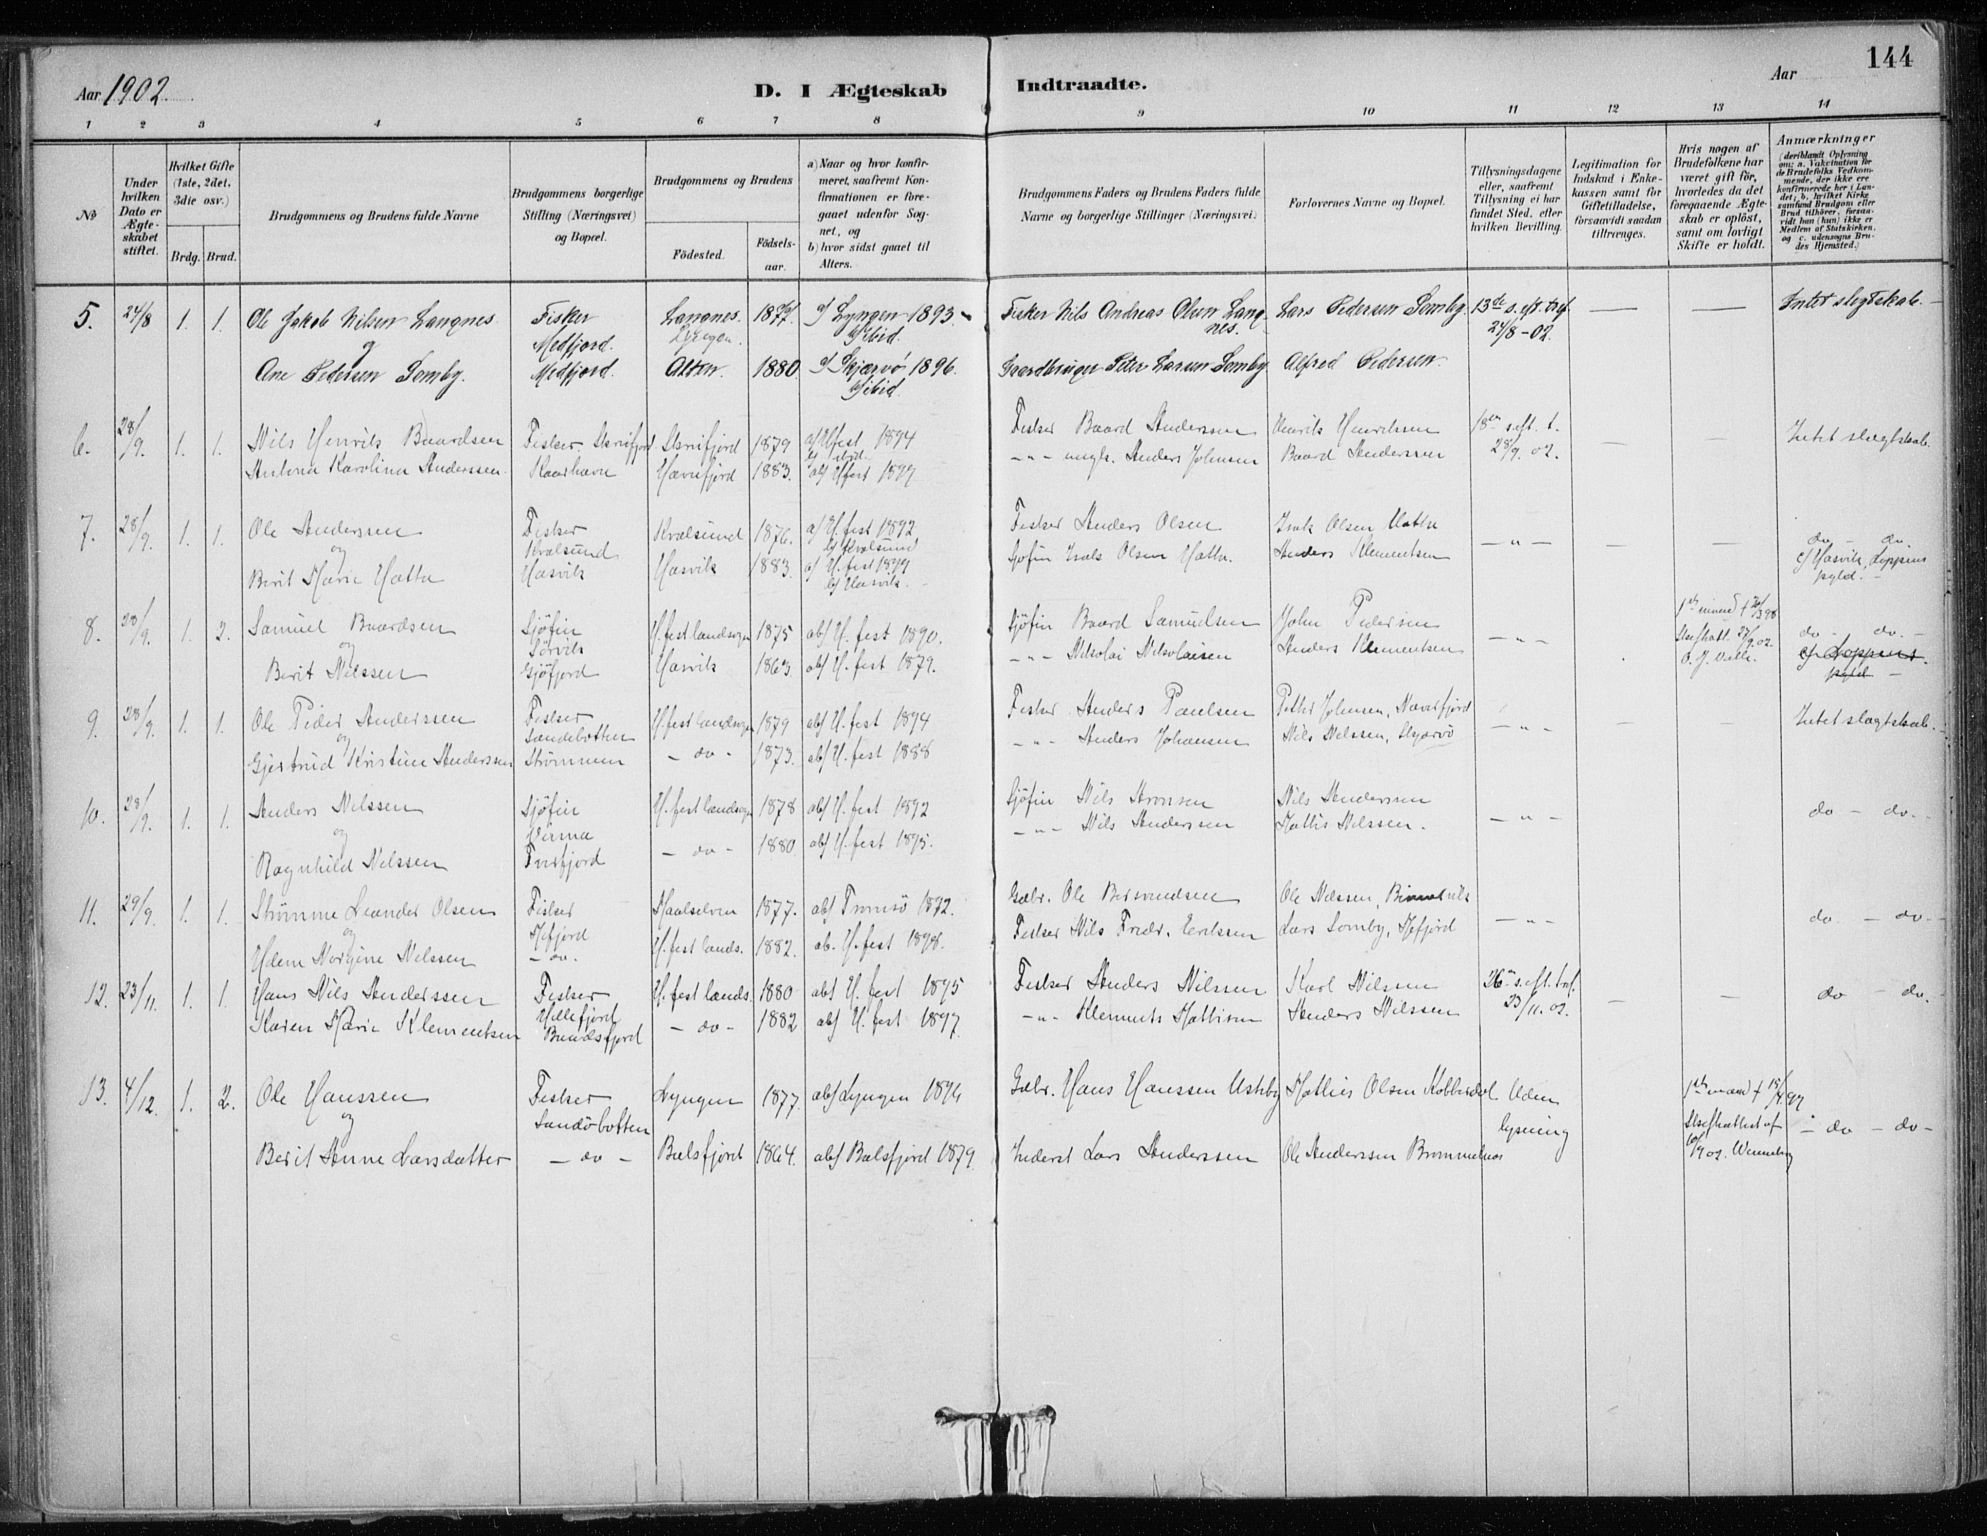 144
Aar 1902
D. I Ægteskab Indtraadte.
Aar
1 2 3 4 5 6 7 8 9 10 11 12 13 14
No
Under hvilken Dato er Ægteskabet stiftet.
Hvilket Gifte (1ste, 2det, 3die osv.)
Brdg. Brud.
Brudgommens og Brudens fulde Navne
Brudgommens borgerlige Stilling (Næringsvei) og Bopæl.
Brudgommens og Brudens
Födested. Födselsaar.
a) Naar og hvor konfirmeret, saafremt Konfirmationen er foregaaet udenfor Sognet, og
b) hvor sidst gaaet til Alters.
Brudgommens Faders og Brudens Faders fulde Navne og borgerlige Stillinger (Næringsvei).
Forlovernes Navne og Bopæl.
Tillysningsdagene eller, saafremt Tillysning ei har fundet Sted, efter hvilken Bevilling.
Legitimation for Indskud i Enkekassen samt for Giftetilladelse, forsaavidt saadan tiltrænges.
Hvis nogen af Brudefolkene har været gift för, hvorledes da det foregaaende Ægteskab er oplöst, samt om lovligt Skifte er holdt.
Anmærkninger (deriblandt Oplysning om: a. Vakcination for de Brudefolks Vedkommende, der ikke ere konfirmerede her i Landet; b. hvilket Kirkesamfund Brudgom eller Brud tilhörer, forsavidt han (hun) ikke er Medlem af Statskirken, og c. udensogns Brudes Hjemsted.)
5. 24/8 1. 1. Ole Jakob Nilsen Langnes Fisker Langnes 1877 a/ Lyngen 1893 Fisker Nils Andreas Olsen Langnes. Lars Pedersen Somby. 13de s. eft. tref. — — Intet slegtskab. —
og Medfjord. Lyngen. b/ ibid. 24/8 - 02.
Ane Pedersen Somby. Medfjord. Alten. 1880 a/ Skjærvø 1896. Gaardbruger Peter Larsen Somby Alfred Pedersen
b/ ibid.
6. 28/9. 1. 1. Nils Henrik Baardsen Fisker, Skrifjord 1879 a/ H.fest 1894 Fisker Baard Anderssen Henrik Henriksen 18de s. eft. t. — — Intet slægtskab.
b/ ibid.
Antona Karolina Anderssen 1883. ab/ H.fest 1897 - " - ungk. Anders Johnsen Baard Anderssen 28/9. 02.
7. 28/9. 1. 1. Ole Anderssen Fisker Kvalsund 1876. a/ H.fest 1892 Fisker Anders Olsen Isak Olsen Hætta — " — — — do - do.
og Kvalsund b/ Kvalsund
Berit Marie Hætta Hasvik Hasvik 1883. a/ H.fest 1899 Sjøfin Isak Olsen Hætta. Anders Klementsen c/ Hasvik, Loppens
b/ Hasvik. pgld. —
8. 28/9. 1. 2. Samuel Baardsen Sjøfin H.fest landsogn 1875 ab/ H. fest 1890. Sjøfin Baard Samuelsen John Pedersen — " — 1ste mand † do - do. -
og Sørvik
Berit Nilssen Hasvik 1863 ab/ H. fest 1879. - " - Nikolai Nikolaisen Anders Klementsen Skifteatt. 27/9. 02. c/ Loppens
pgld —
9. 28/9. 1. 1. Ole Peder Anderssen Fisker H.fest landsogn 1879 ab/ H. fest 1894 Fisker Anders Paulsen Peder Johnsen, Næverfjord — " — — — Intet slægtskab. -
og Sandebotten
Gjertrud Kristine Anderssen Strømmen - do - 1873. ab/ H. fest 1888 - " - Anders Johansen Nils Nilssen, Skjærvø
10. 28/9. 1. 1. Anders Nilssen Sjøfin H. fest landsogn 1878 ab/ H. fest 1892 Sjøfin Nils Aronsen Nils Anderssen — " — do - do. -
og
Ragnhild Nilssen Tverfjord - do - 1880 ab/ H. fest 1895. - " - Nils Anderssen Mathis Nilssen.
11. 29/9. 1. 1. Strømme Leander Olsen Fisker Maalselven 1877. ab/ Tromsö 1892. Gabr. Ole Bersvendsen Ole Nilssen, — " — do - do. -
og Mefjord
Nilssen - do. H. fest lands. 1882. ab. H. fest 1898. Fisker Nils Fredr. Erikssen Lars Somby, Mefjord
12. 23/11. 1. 1. Hans Nils Anderssen Fisker H. fest lands. 1880 ab/ H. fest 1895 Fisker Anders Nilssen Karl Nilssen 26de s. eft. tref. — — do - do. -
Hellefjord
Karen Marie Klementsen - do - 1882 ab/ H. fest 1897. - " - Klements Mathisen Anders Nilssen 23/11. 02.
13. 4/12. 1. 2. Ole Hanssen Fisker Lyngen 1877. ab/ Lyngen 1894 Gabr. Hans Hanssen Mathis Olsen Uden 1ste mand † 15/4 97
og Sandöbotten lysning Skifteattest af - do - do -
Berit Anne Larsdatter - do - Balsfjord 1864. ab/ Balsfjord 1879. Inderst Lars Anderssen Ole Anderssen